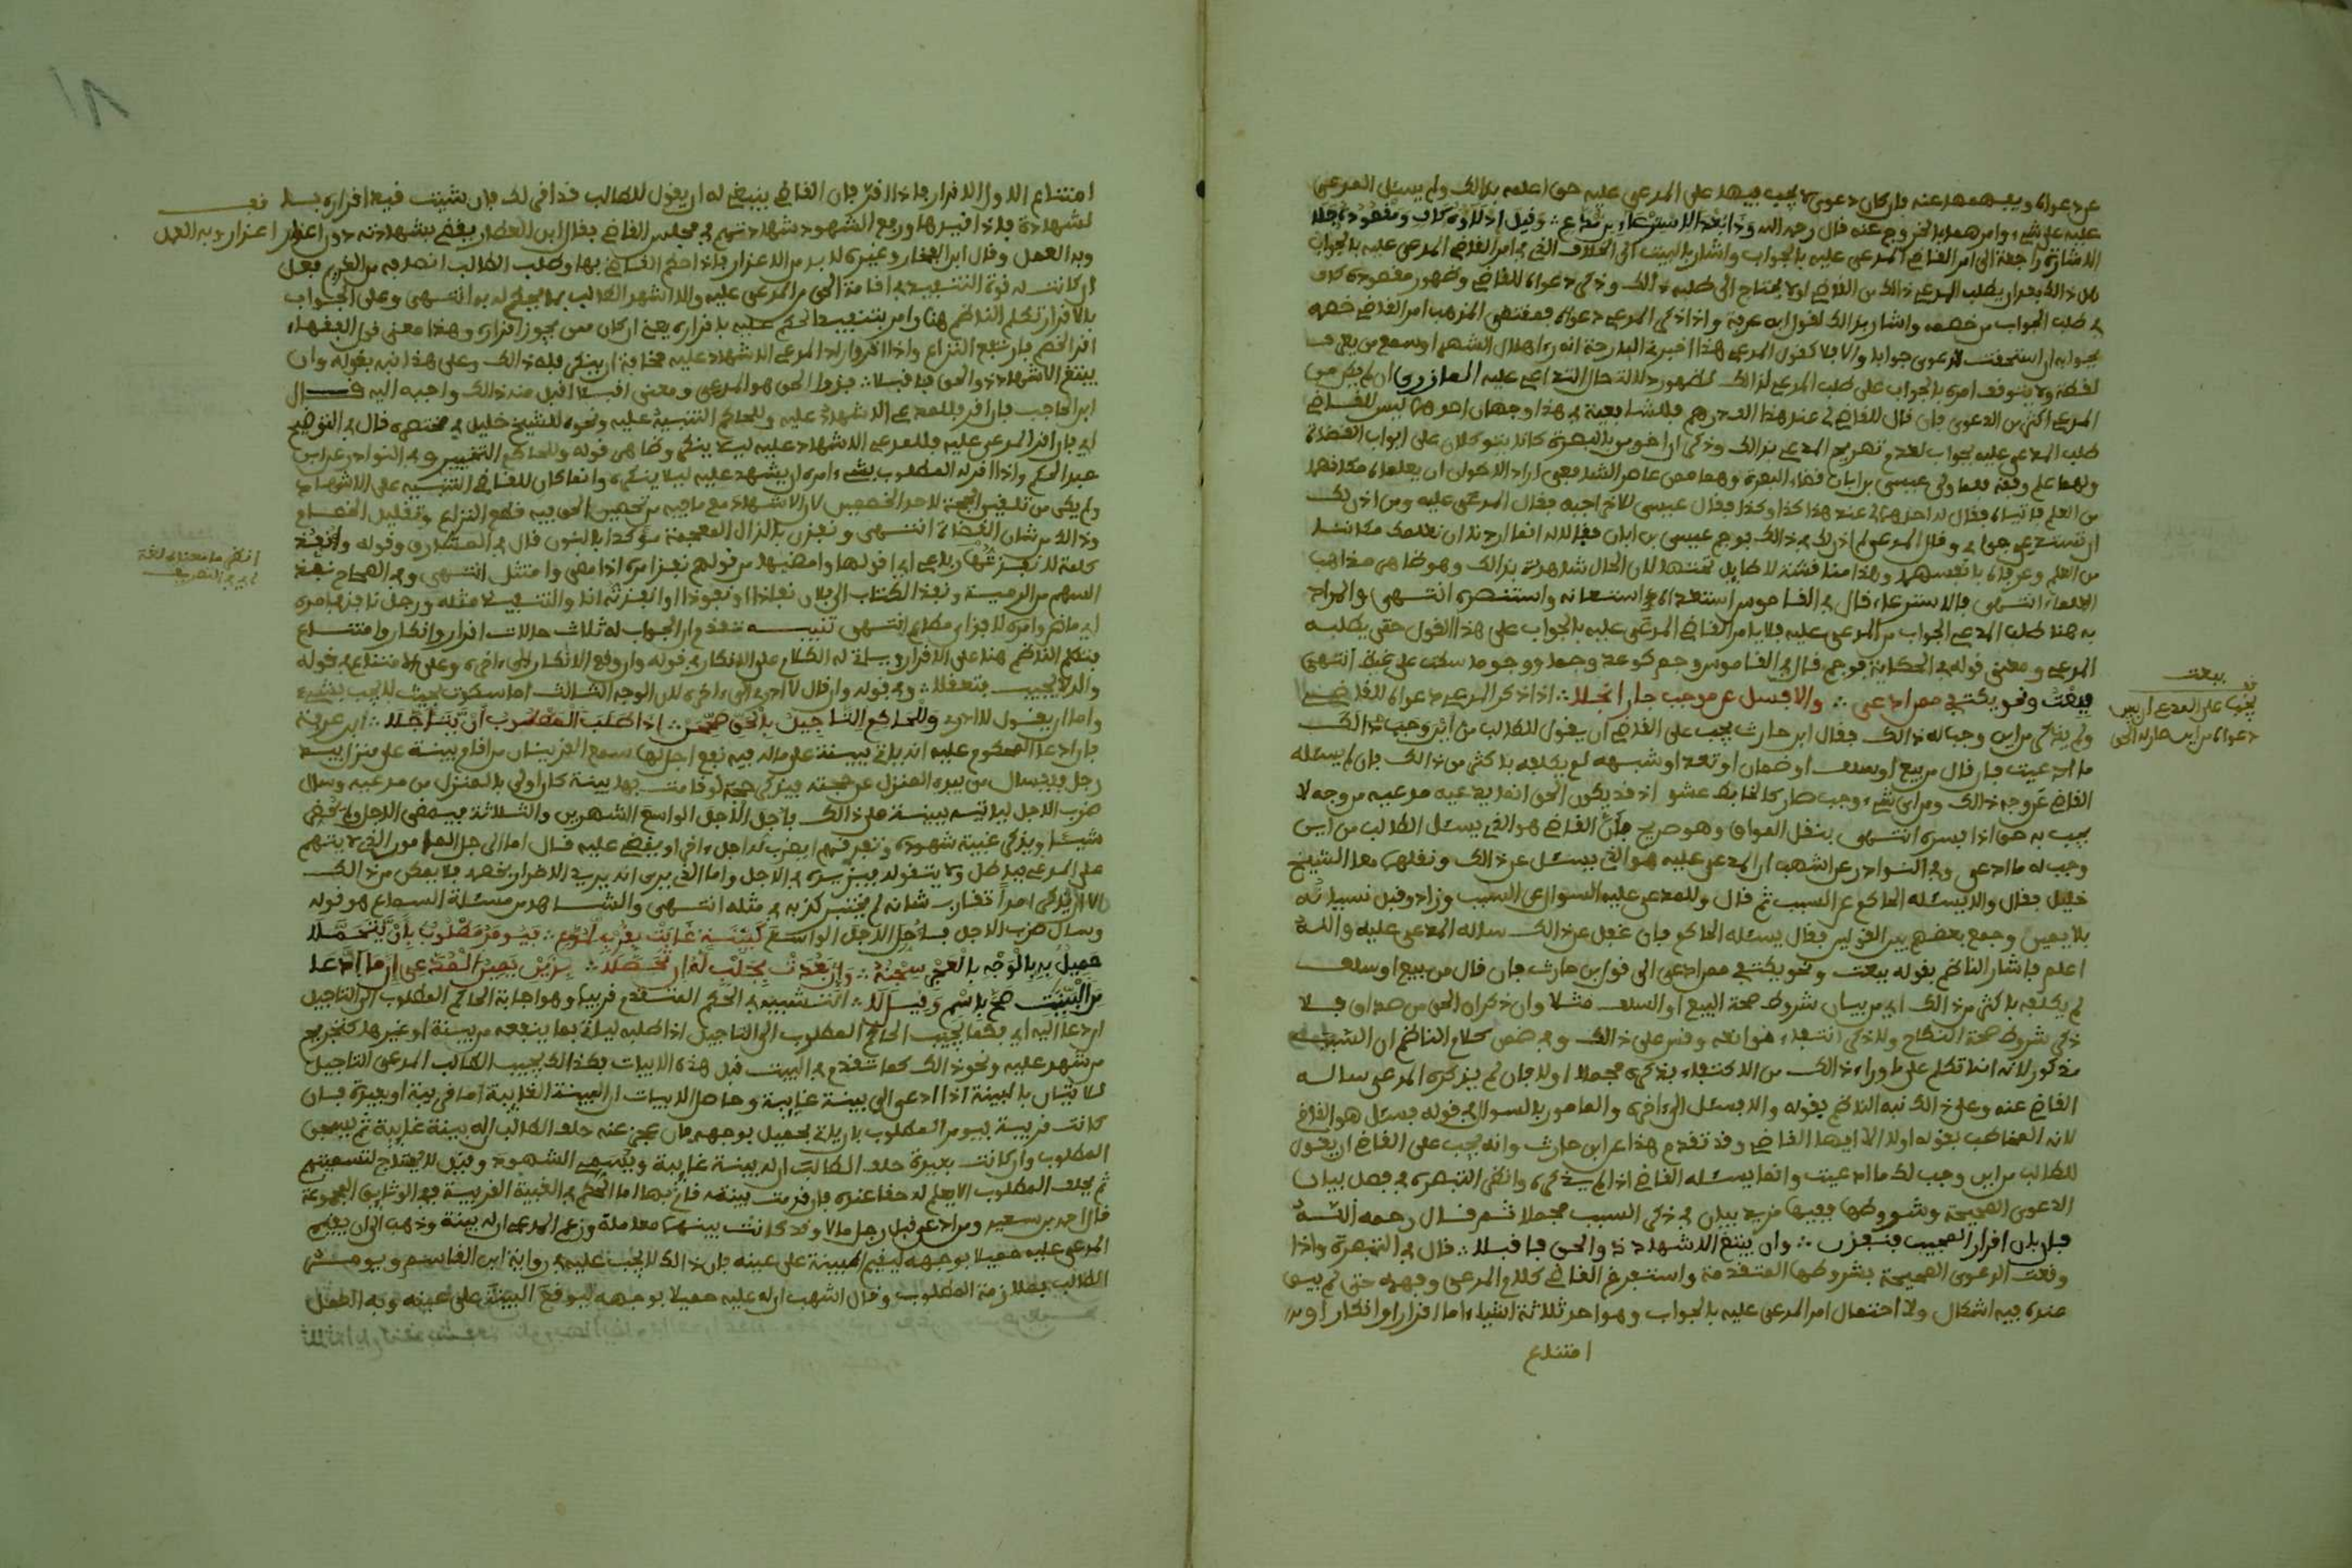 عن دعواه ويفهمها عنه فإن كان دعوى لا يجب فيها على المدعى عليه حق اعلمه بذالك ولم يسئل المدعى
عليه عن شيء وامرهما بالخروج عنه قال رحمه الله
الاشارة راجعة الى امر القاضي المدعى عليه بالجواب واشار بالبيت الى الخلاف الذي في امر القاضي المدعى عليه بالجواب
هل ذالك بعد ان يطلب المدعي ذالك من القاضي اولا يحتاج الى طلبه ذالك وذكر دعواه للقاضي وظهور مقصوده كاف
في طلب الجواب من خصمه واشار بذالك لقول ابن عرفة واذا ذكر المدعي دعواه فمقتضى المذهب امر القاضي خصمه
بجوابه ان استحقت الدعوى جوابا والا فلا كقول المدعي هذا اخبرني البارحة انه رءا هلال الشهر او سمع من يعرف
لقطة ولا يتوقف امره بالجواب على طلب المدعي لذالك لظهور دلالة حال التداعي عليه المازري ان لم يكن من
المدعي اكثر من الدعوى فان قال للقاضي لي عند هذا الف درهم فللشافعية في هذا وجهان احدهما ليس للقاضي
طلب المدعى عليه بجواب لعدم تصريح المدعي بذالك وذكر ان اخوين بالبصرة كانا يتوكلان على ابواب القضاة
ولهما علم وفقه فلما ولي عيسى بن ابان قضاء البصرة وهما ممن عاصر الشافعي اراد الاخوان ان يعلماه مكانهما
من العلم فاتياه فقال له احدهما لي عند هذا كذا وكذا فقال عيسى للاخر اجبه فقال المدعى عليه ومن اذن لك
ان تستدعي جوابي وقال المدعي لم اذن لك في ذالك فوجم عيسى بن ابان فقالا له انما اردنا ان نعلمك مكاننا
من العلم وعرفاه بانفسهما وهذا مناقشة لا طايل تحتها لان الحال شاهدة بذالك وهو ظاهر مذاهب
العلماء انتهى فالاسترعاء قال في القاموس استعداه استعانه واستنصره انتهى والمراد
به هنا طلب المدعي الجواب من المدعى عليه فلا يامر القاضي المدعى عليه بالجواب على هذا القول حتى يطلبه
المدعي ومعنى قوله في الحكاية فوجم قال في القاموس وجم كوعد وجما ووجوما سكت على غيظ انتهى
فبعت ونحو يكتفي ممن ادعى ∴ والا فسل عن موجب حار انجلا ∴ اذا ذكر المدعي دعواه للقاضي
ولم يذكر من اين وجب له ذالك فقال ابن حارث يجب على القاضي ان يقول للطالب من اين وجب ذالك
ما ادعيت فان قال من بيع او سلف او ضمان او تعد او شبهه لم يكلفه باكثر من ذالك فان لم يسئله
القاضي عن وجه ذالك ومن اي شيء وجب صار كالخابط عشو اذ قد يكون الحق الذي يدعيه مدعيه من وجه لا
يجب به حق اذا فسره انتهى بنقل المواق وهو صريح فان القاضي هو الذي يسئل الطالب من اين
وجب له ما ادعى وفي النوادر عن اشهب ان المدعى عليه هو الذي يسئل عن ذالك ونقلهما معا الشيخ
خليل فقال والا يسئله الحاكم عن السبب ثم قال وللمدعى عليه السوال عن السبب وزاد وقبل نسيانه
بلا يمين وجمع بعضهم بين القولين فقال يسئله الحاكم فان غفل عن ذالك ساله المدعى عليه والله
اعلم فاشار الناظم بقوله بيعت ونحو يكتفي ممن ادعى الى قول ابن حارث فان قال من بيع او سلف
لم يكلفه باكثر من ذالك اي من بيان شروط صحة البيع او السلف مثلا وان ذكر ان الحق من صداق فلا
ذكر شروط صحة النكاح ولا ذكر انتفاء موانعه وقس على ذالك وفي ضمن كلام الناظم ان السبب
مذكور لانه انما تكلم على ما وراء ذالك من الاكتفاء بذكره مجملا اولا فان لم يذكره المدعي ساله
القاضي عنه وعلى ذالك نبه الناظم بقوله والا يسئل الى ءاخره والمامور بالسوال في قوله يسئل هو القاضي
لانه المخاطب بقوله اولا الا ايها القاضي وقد تقدم هذا عن ابن حارث وانه يجب على القاضي ان يقول
للطالب من اين وجب لك ما ادعيت وانما يسئله القاضي اذا لم يذكره وانظر التبصرة في فصل بيان
الدعوى الصحيحة وشروطها ففيها مزيد بيان في ذكر السبب مجملا ثم قال رحمه الله
فان بان اقرار المجيب فنفذن ∴ وان يبتغ الاشهاد ذو الحق فاقبلا ∴ قال في التبصرة واذا
وقعت الدعوى الصحيحة بشروطها المتقدمة واستفرغ القاضي كلام المدعي وفهمه حتى لم يبق
عنده فيه اشكال ولا احتمال امر المدعى عليه بالجواب وهو احد ثلاثة اشياء اما اقرار او انكار او
امتناع
بيعت
يجب على المدعي ان يبين
دعواه من اين صار له الحق
امتناع الاول الاقرار فاذا اقر فان القاضي ينبغي له ان يقول للطالب قد اقر لك فان شيت فيد اقراره
لشهادة فاذا قيدها ورفع الشهود شهادتهم في مجلس القاضي فقال ابن العطار يقضي بشهادته دون اعذار وبه العمل
وبه العمل وقال ابن الفخار وغيره لا بد من الاعذار فاذا حكم القاضي بها وطلب الطالب انصافه من الغريم فعل
بالاقرار تكلم الناظم هنا وامر بتنفيذ الحكم عليه باقراره يعني ان كان ممن يجوز اقراره وهذا معنى قول الفقهاء
اقر الخصم فارتفع النزاع واذا اقر واراد المدعي الاشهاد عليه مخافة ان ينكر فله ذالك وعلى هذا نبه بقوله وان
يبتغ الاشهاد ذو الحق فاقبلا ∴ فذو الحق هو المدعي ومعنى اقبلا اقبل منه ذالك واجبه اليه قال
ابن الحاجب فان اقر فللمدعي الاشهاد عليه وللحاكم التنبيه عليه ونحوه للشيخ خليل في مختصره قال في التوضيح
اي فان اقر المدعى عليه فللمدعي الاشهاد عليه ليلا ينكر وظاهر قوله وللحاكم التخيير وفي النوادر عن ابن
عبد الحكم واذا اقر له المطلوب بشيء امره ان يشهد عليه ليلا ينكره وانما كان للقاضي التنبيه على الاشهاد
ولم يكن من تلقين الحجة لاحد الخصمين لان الاشهاد مع ما فيه من تحصين الحق فيه قطع النزاع وتقليل الخصام
وذالك من شان القضاة انتهى ونفذن بالذال المعجمة مؤكدا بالنون
السهم من الرمية ونفذ الكتاب الى فلان نفاذا ونفوذا وانفذته انا والتنفيذ مثله ورجل نافذ في امره
اي ماض وامره نافذ اي مطاع انتهى تنبيه تقدم ان الجواب له ثلاث حالات اقرار وانكار وامتناع
فتكلم الناظم هنا على الاقرار وسياتي له الكلام على الانكار في قوله وان وقع الانكار الى ءاخره وعلى الامتناع في قوله
والا يجيب فتعقلا ∴ وفي قوله وان قال لا ادري الى ءاخره لان الوجه الثالث اما سكوت بحيث لا يجيب بشيء
واما ان يقول لا ادري وللحاكم التاجيل بالحق ∴ اذا طلب المطلوب ان يتاجلا ∴ ابن عرفة
فان ادعا المحكوم عليه انه ياتي ببينة على ما له فيه نفع اجل لها سمع القرينان من اقام بينة على منزل بيد
رجل فيسال من بيده المنزل عن حجته فيذكر حجة لو قامت بها بينة كان اولى بالمنزل من مدعيه وسال
ضرب الاجل لياتيه ببينة على ذالك باجل الاجل الواسع الشهرين والثلاثة فيمضي الاجل ولم يحضر
شيئا ويذكر غيبة شهوده وتفرقهم ايضرب له اجل ءاخر او يقضي عليه قال اما الرجل المامون الذي لا يتهم
على المدعي بباطل ولا بتقوله فيزيده في الاجل واما الذي يرى انه يريد الاضرار بخصمه فلا يمكن من ذالك
الا ان يذكر امدا تقارب شانه لم يختبر كذبه في مثله انتهى والشاهد من مسئلة السماع هو قوله
وسال ضرب الاجل باجل الاجل الواسع
حميل به بالوجه بالعجز سجنه ∴ وان بعدت
من البينت
ان دعا اليه اي وكما يجيب الحاكم المطلوب الى التاجيل اذا طلبه لياتي بما ينفعه من بينة او غيرها كتجريح
من شهد عليه ونحو ذالك كما تقدم في البيت قبل هذه الابيات فكذالك يجيب الطالب المدعي التاجيل
لاتيان بالبينة اذا ادعى الى بينة غايبة وحاصل الابيات ان البينة الغايبة اما قريبة او بعيدة فان
كانت قريبة فيومر المطلوب بان ياتي بحميل بوجهه فان عجز عنه حلف الطالب ان له بينة غايبة ثم يسجن
المطلوب وان كانت بعيدة حلف الطالب ان له بينة غايبة ويسمي الشهود وقيل لا يحتاج لتسميتهم
ثم يحلف المطلوب الا يعلم له حقا عنده فان قدمت بينته قام بها اما الحكم في الغيبة القريبة ففي الوثايق المجموعة
قال احمد بن سعيد ومن ادعى قبل رجل مالا وقد كانت بينهما معاملة وزعم المدعي ان له بينة وذهب الى ان يقيم
المدعى عليه حميلا بوجهه ليقيم البينة على عينه فان ذالك لا يجب عليه في رواية ابن القاسم ويومر
الطالب بملازمة المطلوب وقال اشهب ان له عليه حميلا بوجهه ليوقع البينة على عينه وبه العمل
١٨